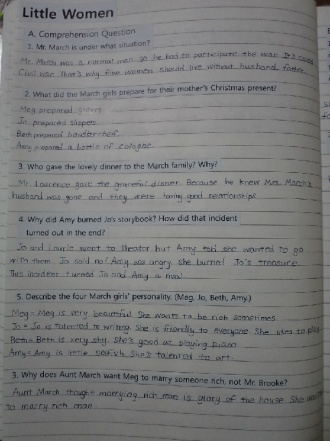 Little Women
A. Comprehension Question
1. Mr. March is under what situation?
Mr. March was a normal man so he had to participate the war. It's called
Civil war. that's why five women should live without husband, father.
2. What did the March girls prepare for their mother's Christmas present?
Meg prepared gloves
Jo prepared slippers
Beth prepared handkerchief
Amy prepared a bottle of cologne
3. Who gave the lovely dinner to the March family? Why?
Mr. Laurence gave the graceful dinner. Because he knew Mrs. March's
husband was gone and they were having good relationship
4. Why did Amy burned Jo's storybook? How did that incident
turned out in the end?
Jo and Laurie went to theater but Amy told she wanted to go
with them. Jo said no! Amy was angry, she burned Jo's treasure.
This incident turned Jo and Amy a rival
5. Describe the four March girls' personality. (Meg, Jo, Beth, Amy)
Meg = Meg is very beautiful She wants to be rich sometimes.
Jo = Jo is talented to writing. She is friendly to everyone She likes to play
Beth = Beth is very shy. She's good at playing piano
Amy = Amy is little selfish She's talented to art.
Why does Aunt March want Meg to marry someone rich, not Mr. Brooke?
Aunt March thought marrying rich man is glory of the house She
to marry rich man